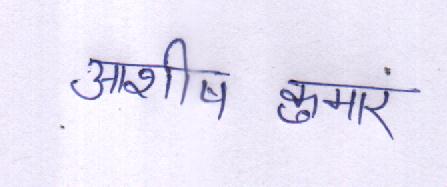 आशीष कुमारं